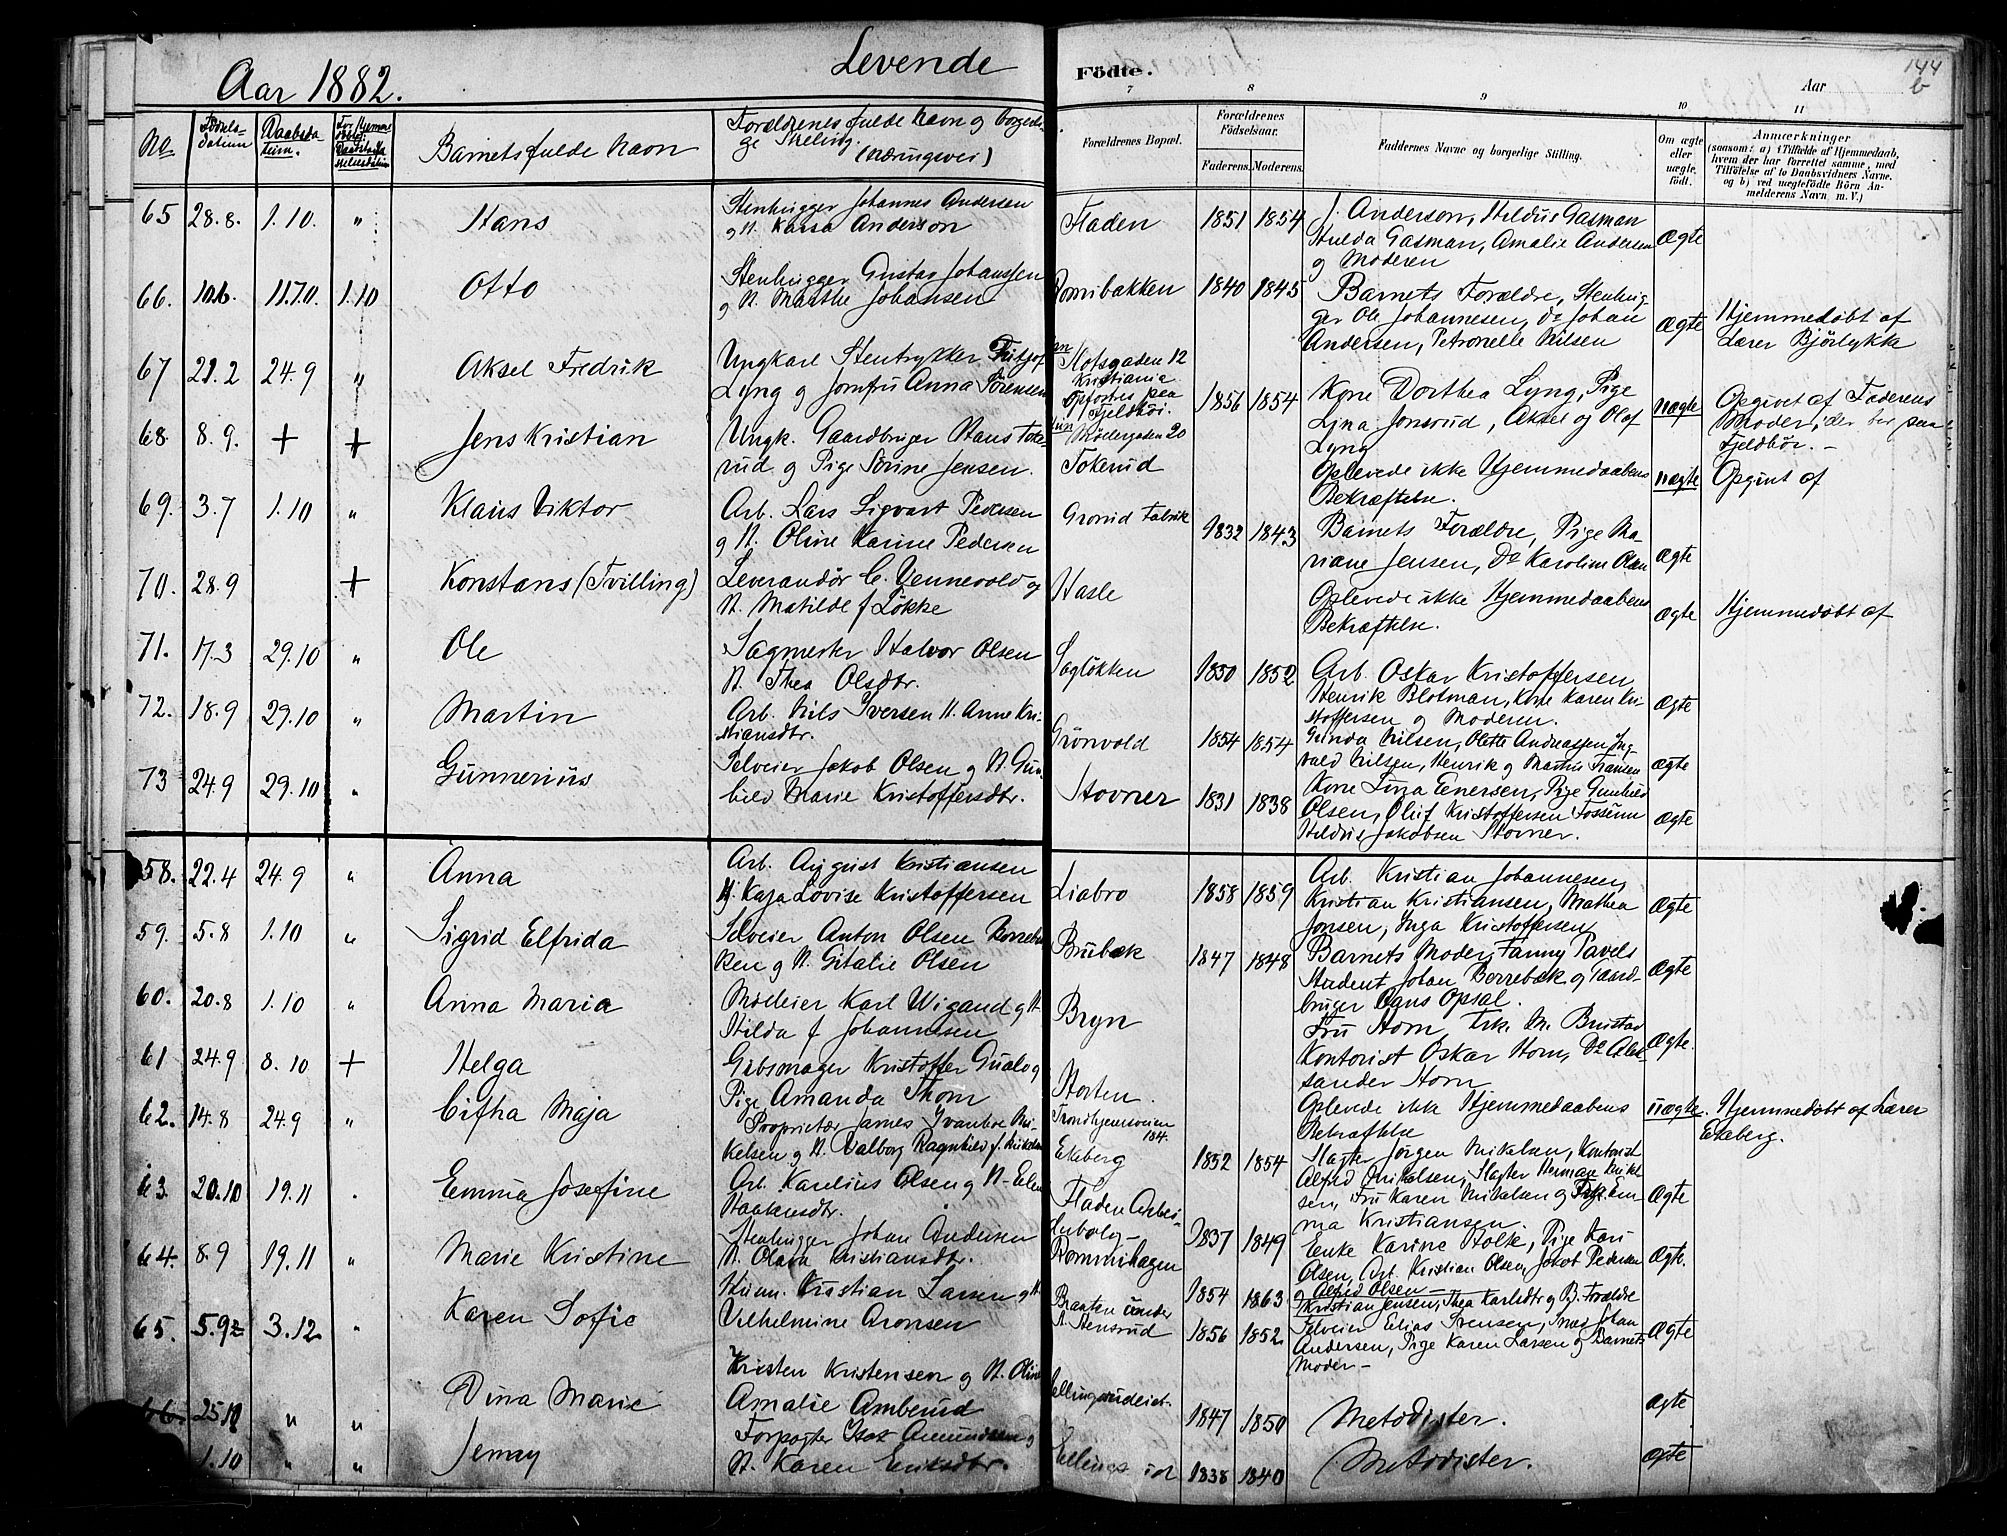 Aar 1882.
Levende
Födte.
Aar
144
b
7 8 9 10 11
No
Fødsels-
datum
Daabsda-
tum.
Barnets fulde Navn
Forældrenes fulde Navn og borgerli-
ge Stilling.
(Næringsvei)
Forældrenes Bopæl.
Forældrenes
Födselsaar.
Faderens. Moderens.
Faddernes Navne og borgerlige Stilling.
Om ægte
eller
uægte
födt.
Anmærkninger
(saasom: a) i Tilfælde af Hjemmedaab,
hvem der har forrettet samme, med
Tilföielse af to Daabsvidners Navne.
og b) ved uægtefödte Börn An-
melderens Navn, m. V.)
65 28.8. 1.10. " Hans
Stenhugger Johannes Andersen
og H. Kaisa Anderson
Fladen 1851 1854
J. Anderson, Hildus Gasman
Hulda Gasman, Amalie Andersen
og Moderen
Ægte
66. 10.6. 11.70. 1.10 Otto
Stenhugger Gustav Johanssen
og H. Marthe Johansen
Romibakken 1840 1845
Barnets Forældre, Stenhug-
ger Ole Johannesen, Do Johan
Andersen, Petronelle Nilsen
Ægte
Hjemmedøbt af
Lærer Bjørlykke
67 21.2 24.9 " Aksel Fredrik
Ungkarl Stentrykker Fritjof
Lyng og Jomfru Anna Sørensen
Slotsgaden 12
Kristiania
Opfostres paa
Fjeldhöi.
Møllergaden 20
1856 1854
Kone Dorthea Lyng, Pige
Lina Jonsrud, Aksel og Olaf
Lyng
Uægte
Opgivet af Faderens
Moder, der bor paa
Fjeldhöi. -
68 8.9. + + Jens Kristian
Ungk. Gaardbruger Hans Toke-
rud og Pige Sørine Jensen.
Tokerud
Oplevede ikke Hjemmedaabens
Bekræftelse.
Uægte
Opgivt af
69. 3.7 1.10 " Klaus Viktor
Arb. Lars Sigvart Pedersen
og H. Oline Karine Pedersen
Grorud Fabrik 1832 1843
Barnets Forældre, Pige Ma-
riane Jensen, Do Karoline Olsen
Ægte
70. 28.9 + Konstans (Tvilling)
Leverandör C. Vennevold og
H. Matilde f. Løkke
Hasle
Oplevede ikke Hjemmedaabens
Bekræftelse.
Ægte
Hjemmedøbt af
71. 17.3 29.10 " Ole
Sagmester Halvor Olsen
H. Thea Olsdtr.
Sagløkken 1850 1852
Arb. Oskar Kristoffersen
Henrik Blotman, Kone Karen Kri-
stoffersen og Moderen.
Ægte
72. 18.9 29.10 " Martin
Arb. Nils Iversen H. Anne Kri-
stiansdtr.
Grönvold 1854 1854
Gunda Nilsen, Olette Andreassen, Ing-
vald Nilsen, Henrik og Martin Fransen
Ægte
73 24.9 29.10 " Gunnerius
Selveier Jakob Olsen og H. Gun-
hild Marie Kristoffersdtr.
Stovner 1831 1838
Kone Lina Enersen, Pige Gunhild
Olsen, Oluf Kristoffersen Fossum
Hildus Jakobsen Stovner.
Ægte
58. 22.4 24.9 " Anna
Arb. August Kristiansen
H. Kaja Lovise Kristoffersen
Liabro 1858 1859
Arb. Kristian Johannesen,
Kristian Kristiansen, Mathea
Jonsen, Inga Kristoffersen
Ægte
59. 5.8 1.10 " Sigrid Elfrida
Selveier Anton Olsen Borrebæk-
ken og H. Gitalie Olsen
Brubæk 1847 1848
Barnets Moder, Fanny Pavels
Student Johan Borrebæk og Gaard-
bruger Hans Opsal.
Ægte
60. 20.8 1.10 " Anna Maria
Mølleier Karl Wigand og H.
Hilda f. Johannesen
Bryn
Fru Horn, Frk. M. Brustad
Kontorist Oskar Horn, Do Alek-
sander Horn
Ægte.
61 24.9 8.10 + Helga
Gibsmager Kristoffer Gualo og
Pige Amanda Thom
Horten.
Oplevede ikke Hjemmedaabens
Bekræftelse
Uægte.
Hjemmedøbt af Lærer
Ekeberg.
62. 14.8 24.9 " Citha Maja
Proprietær James Ivanhoe Mi-
kelsen og H. Valborg Ragnhild f. Mikelsen
Trondhjemsveien
104.
Ekeberg 1852 1854
Slagter Jörgen Mikelsen, Kontorist
Alfred Mikelsen, Slagter Herman Mikel-
sen, Fru Karen Mikelsen og Frk. Em-
ma Kristiansen.
Ægte
63. 20.10 19.11 . Emma Josefine
Arb. Karelius Olsen og H. Elen
Haakensdtr.
Fladen Arbei-
derbolig 1837 1849
Enke Karine Holte, Pige Kari
Olsen, Arb. Kristian Olsen, Jakob Pedersen
og Alfrid Olsen
Ægte.
64. 8.9 19.11 " Marie Kristine
Stenhugger Johan Andersen
H. Olava Kristiansdtr.
Rommihagen 1854 1863
Kristian Jensen, Thea Karlsdtr og B. Forældre
65. 5.92 3.12 " Karen Sofie
Husm. Kristian Larsen og H.
Vilhelmine Aronsen
Braaten under
N. Stensrud 1856 1852
Selveier Elias Svensen, Smed Johan
Andersen, Pige Karen Larsen og Barnets
Moder -
Ægte
66. 25.10 " " Dina Marie
Kristen Kristensen og H. Oline
Amalie Amberud
1847 1850
Metodister.
Ægte
1.10 " " Jenny
Forpagter Amundsen og
H. Karen Eriksdtr.
1838 1840
Metodister.
Ægte